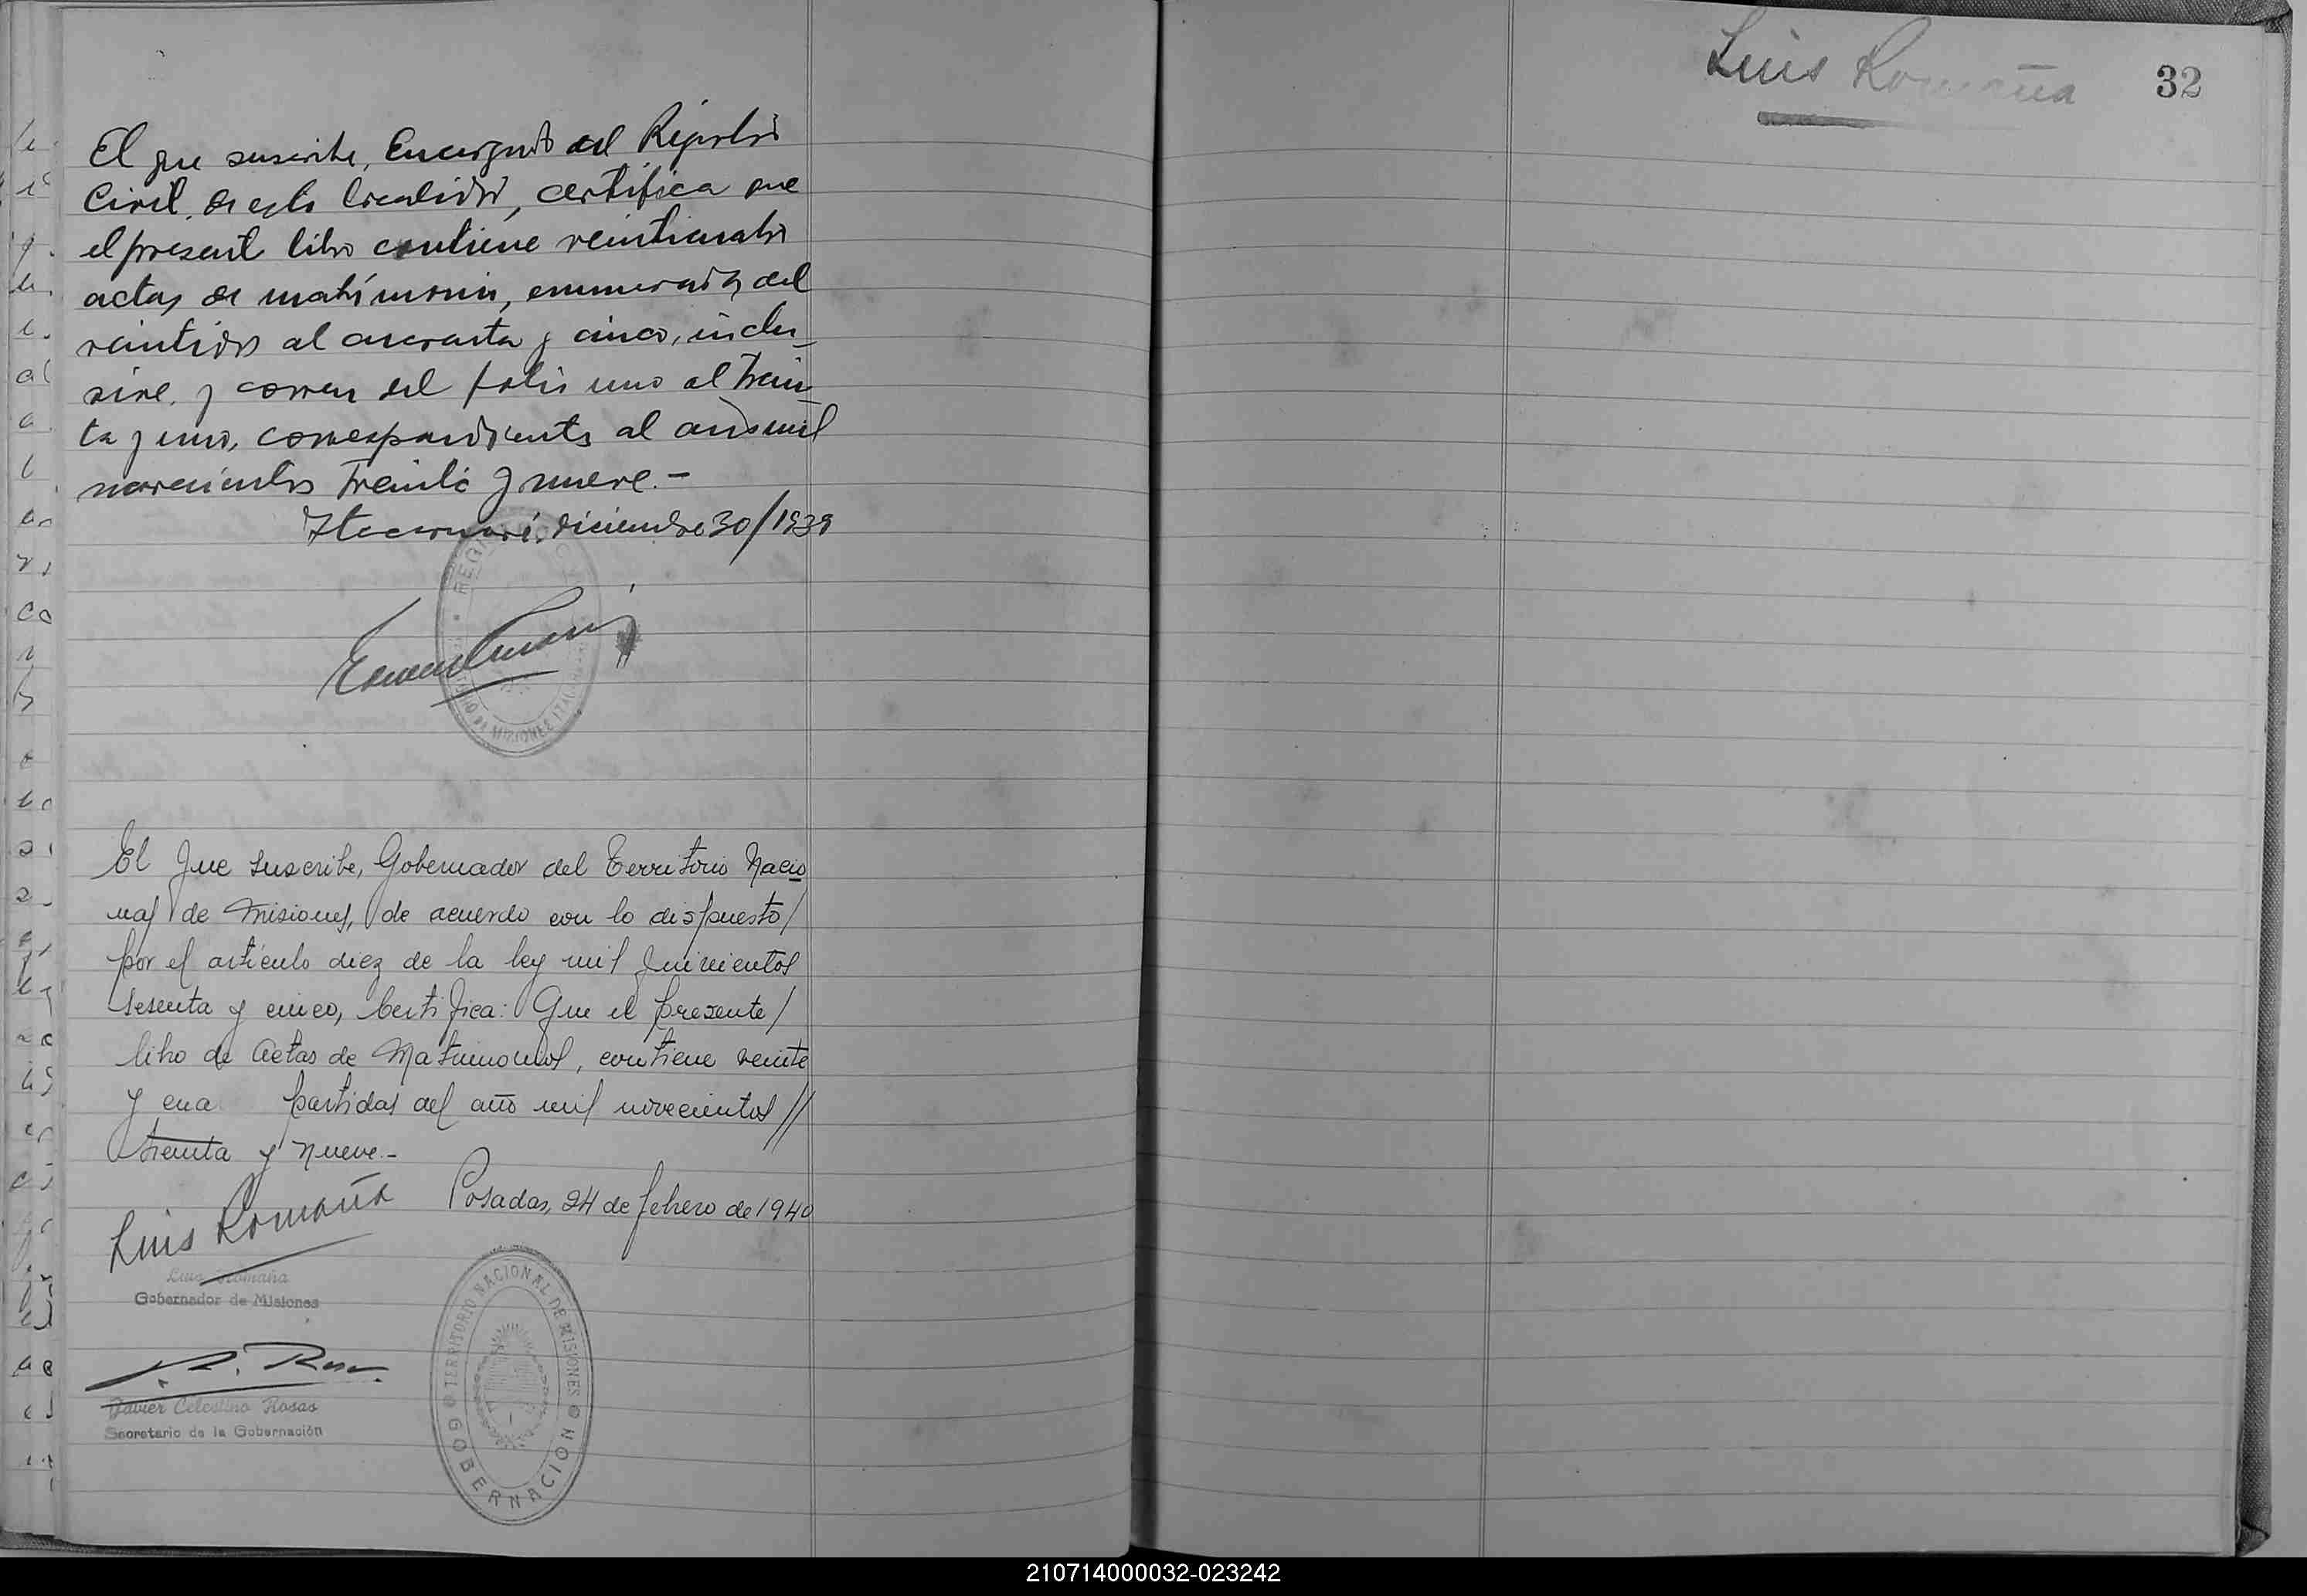 El que suscribe, Encargado del Registro
Civil, de esta localidad, certifica que
el present libro contiene veinticuatro
actas de matrimonio, enumeradas del
veintidos al cuarenta y cinco, inclu_
sive. y corren del folio uno al trein_
ta y uno, correspondiente al año mil
novecientos treinta y nueve.-
Itacaruaré, diciembre 30/1939
El que suscribe, Gobernador del Territorio Nacio
nal de Misiones, de acuerdo con lo dispuesto/
por el artículo diez de la ley mil quinientos
sesenta y cinco, Certifica: Que el presente/
libro de Actas de Matrimonios, contiene veinte
y cua partidas del año mil novecientos //
treinta y nueve.-
Posadas, 24 de febrero de 1940
Luis Romaña
Luis Romaña
Gobernador de Misiones
Javier Celestino Rosas
Secretario de la Gobernación
TERRITORIO NACIONAL DE MISIONES
GOBERNACION
Luis Romaña
32
210714000032-023242